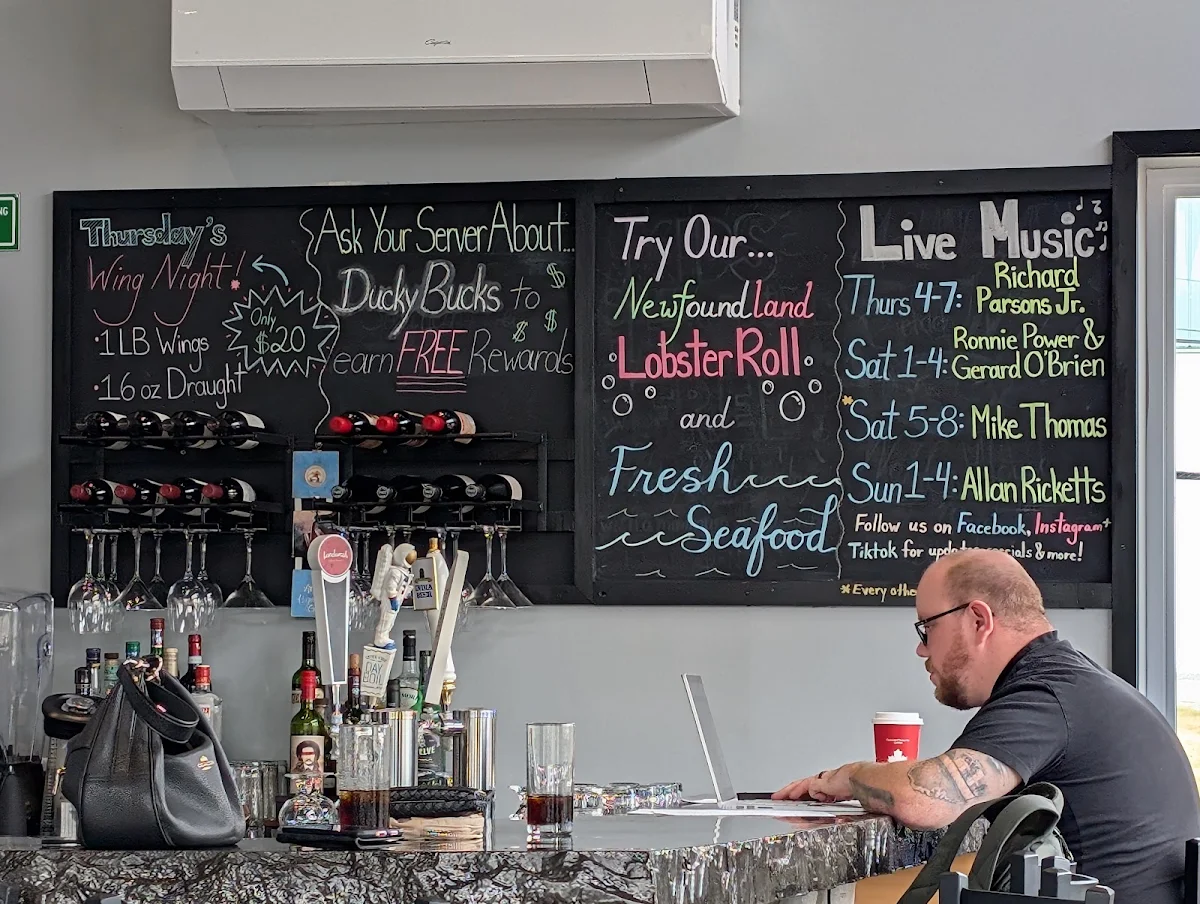 Thursday's
Wing Night!
Only
$20
•1LB Wings
•16 oz Draught
Ask Your Server About...
Ducky Bucks to
earn FREE Rewards
Try Our...
Newfoundland
Lobster Roll
and
Fresh
Seafood
Live Music
Thurs 4-7: Richard Parsons Jr.
Sat 1-4: Ronnie Power & Gerard O'Brien
*Sat 5-8: Mike Thomas
Sun 1-4: Allan Ricketts
Follow us on Facebook, Instagram+
Tiktok for & more!
*Every
NG
INDIA
BEER
DAY